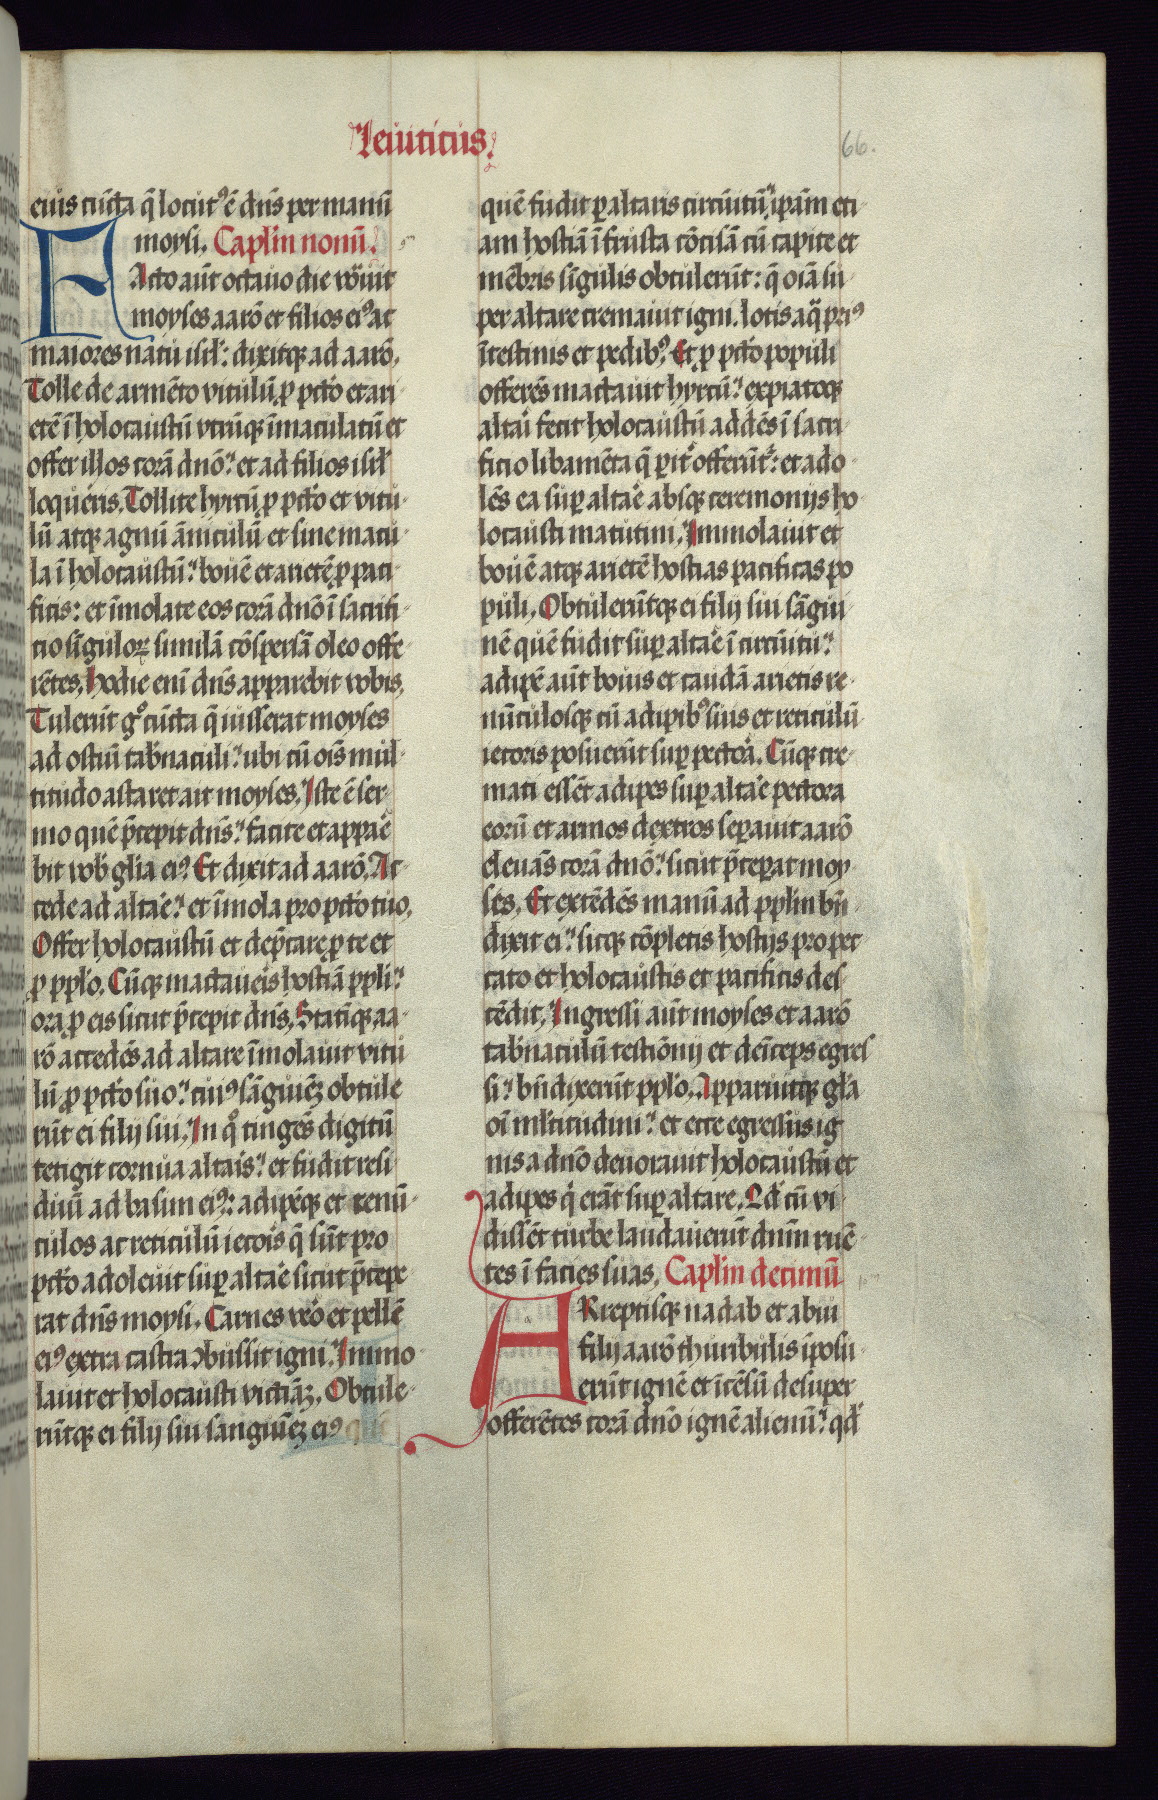 Leuiticus.
66.
eius cūcta q̄ locut⁹ ē dn̄s per manū
moysi. Caplm̄ nonū.
FActo aūt octauo die vocauit
moyses aarō et filios ei⁹ ac
maiores natu isrl̄: dixitqꝫ ad aarō.
Tolle de armēto vitulū ꝓ pctō et ari
etē ī holocaustū vtrūqꝫ īmaculatū et
offer illos corā dn̄o. et ad filios isrl̄
loquēris. Tollite hyrcū ꝓ pctō et vitu
lū atqꝫ agnū āniculū et sine macu
la ī holocaustū. bouē et arietē ꝓ paci
ficis: et īmolate eos corā dn̄o ī sacrifi
cio sīguloꝝ similā cōspersā oleo offe
rētes. Hodie eni dn̄s apparebit vobis.
Tulerūt gͦ cūcta q̄ iusserat moyses
ad ostiū tab̄naculi. ubi cū oīs mul
titudo astaret ait moyses. Iste ē ser
mo quē p̄cepit dn̄s. facite et appae
bit vob̄ glīa ei⁹. Et dixit ad aarō. Ac
cede ad altae. et īmola pro pctō tuo.
Offer holocaustū et dep̄care ꝓ te et
ꝓ pplō. Cūqꝫ mactaueis hostiā ppli.
ora ꝓ eis sicut p̄cepit dn̄s. Statiqꝫ aa
rō accedēs ad altare īmolauit vitu
lū ꝓ pctō suo. cui⁹ sāguinēꝫ obtule
rūt ei filij sui. In qͦ tingēs digitū
tetigit cornua altais. et fudit resi
duū ad basim ei⁹: adipēqꝫ et renū
culos ac reticulū iecois q̄ sūt pro
pctō adoleuit suꝑ altae sicut p̄cepe
rat dn̄s moysi. Carnes veo et pellē
ei⁹ extra castra ꝯbussit igni. Immo
lauit et holocausti victiāꝫ. Obtule
rūtqꝫ ei filij sui sanguinēꝫ ei⁹
quē fudit ꝑ altaris circuitū. ipām eti
am hostiā ī frusta cōcisā cū capite et
mēbris sīgulis obtulerūt: q̄ oīa su
per altare cremauit igni. lotis aq̄ pri⁹
ītestinis et pedib⁹. Et ꝓ pctō populi
offerēs mactauit hyrcū. expiatoqꝫ
altai fecit holocaustū addēs ī sacri
ficio libamēta q̄ ꝑit offerūt: et ado
lēs ea suꝑ altae absqꝫ ceremonijs ho
locausti matutini. Immolauit et
bouē atqꝫ arietē hostias pacificas po
puli. Obtulerūtqꝫ ei filij sui sāgui
nē quē fudit suꝑ altae ī circuitu.
adipē aūt bouis et caudā arietis re
nūculosqꝫ cū adipib⁹ suis et reticulū
iecoris posuerūt suꝑ pectoa. Cūqꝫ cre
mati essēt adipes suꝑ altae pectora
eorū et armos dextros separauit aarō
eleuās corā dn̄o. sicut p̄ceꝑat moy
ses. Et extēdēs manū ad pplm̄ bn̄
dixit ei. sicqꝫ cōpletis hostijs pro pec
cato et holocaustis et pacificis des
cēdit. Ingressi aūt moyses et aarō
tab̄naculū testiōnij et deīceps egres
si. bn̄dixerūt pplō. Apparuitqꝫ glīa
oī ml̄titudini. et ecce egressus ig
nis a dn̄o deuorauit holocaustū et
adipes q̄ erāt suꝑ altare. Qd̄ cū vi
dissēt turbe laudauerūt dn̄m ruē
tes ī facies suas. Caplm̄ decimū
ARreptisqꝫ nadab et abiu
filij aarō thuribulis īposu
erūt ignē et īcēsū desuper
offerētes corā dn̄o ignē alienū. qd̄